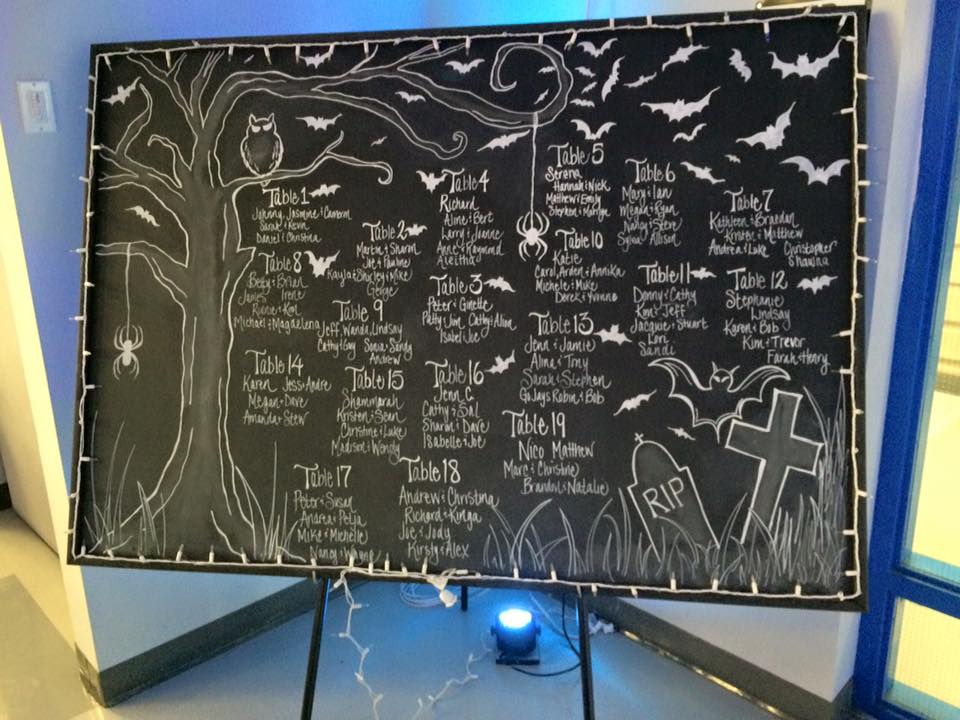 Table 1
Johnny, Jasmine & Cameron
Sarah & Kevin
Daniel & Christina
Table 2
Martin & Sharon
Joe & Pauline
Kayla & Shirley & Mike
George
Table 3
Peter & Ginette
Patty & Jim Cathy & Alion
Isabel & Joe
Table 4
Richard
Aline & Bert
Larry & Jeanne
Anne & Raymond
Aleitha
Table 5
Serena
Hannah & Nick
Matthew & Emily
Stephen & Marilyn
Table 6
Mary & Ian
Megan & Ryan
Nancy & Steve
Sylvia & Allison
Table 7
Kathleen & Brandan
Kristen & Matthew
Andrea & Luke Christopher
Shauna
Table 8
Betty & Brian
James Irene
Ronnie & Ken
Michael & Magdalena
Table 9
Jeff Wanda, Lindsay
Cathy & Guy Sonia & Sandy
Andrew
Table 10
Katie
Carol, Arden & Annika
Michele & Mike
Derek & Yvonne
Table 11
Donny & Cathy
Ken & Jeff
Jacquie & Stuart
Lori
Sandi
Table 12
Stephanie
Lindsay
Karen & Bob
Kim & Trevor
Farah & Henry
Table 13
Jenn & Jamie
Alina & Tony
Sarah & Stephen
GoJays Robin & Bob
Table 14
Karen Jess & Andre
Megan & Dave
Amanda & Stew
Table 15
Shammarah
Kristen & Sean
Christine & Luke
Madison & Wendy
Table 16
Jenn C.
Cathy & Sal
Sharon & Dave
Isabelle & Joe
Table 17
Peter & Susan
Andrea & Petja
Mike & Michelle
Nancy & Wayne
Table 18
Andrew & Christina
Richard & Kinga
Joe & Jody
Kirsty & Alex
Table 19
Nico Matthew
Marc & Christine
Brandon & Natalie
RIP